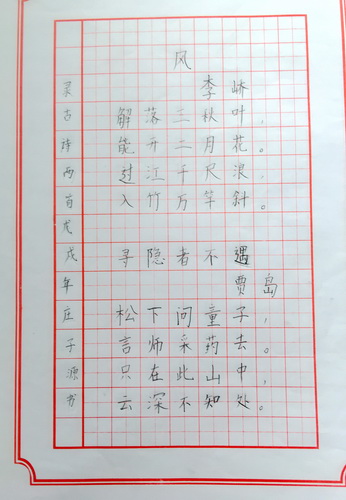 风
李峤
解落三秋叶，
能开二月花。
过江千尺浪，
入竹万竿斜。
寻隐者不遇
贾岛
松下问童子，
言师采药去。
只在此山中，
云深不知处。
录古诗两首戊戌年庄子源书